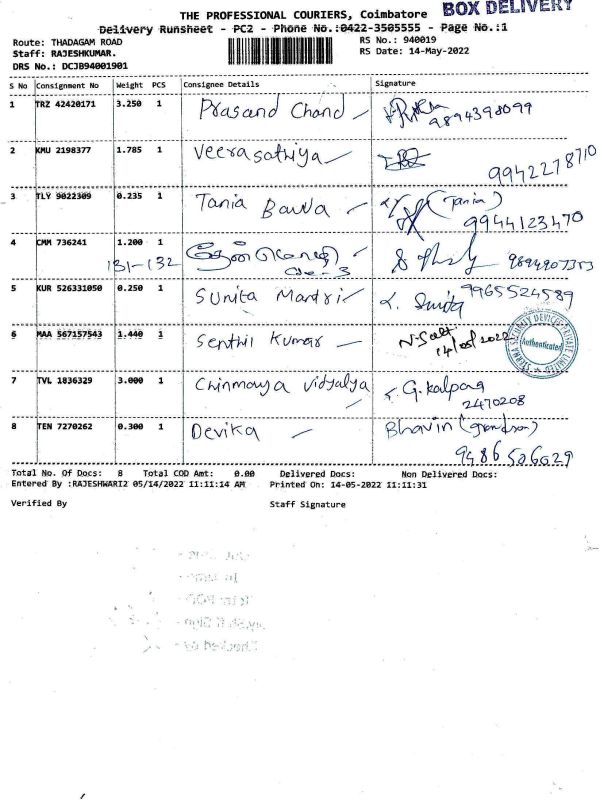 BOX DELIVERY
THE PROFESSIONAL COURIERS, Coimbatore
Delivery Runsheet - PC2 - Phone No.:0422-3505555 - Page No.:1
Route: THADAGAM ROAD
RS No.: 940019
Staff: RAJESHKUMAR.
RS Date: 14-May-2022
DRS No.: DCJB94001901
S No Consignment No Weight PCS Consignee Details Signature
1 TRZ 42420171 3.250 1 Prasand Chand
9894398099
2 KMU 2198377 1.785 1 Veerasathiya
9942278710
3 TLY 9022309 0.235 1 Tania Bawa (Tania)
9944123470
4 CMM 736241 1.200 1
131-132 9894907353
5 KUR 526331050 0.250 1 Sunita Mantri 9965524589
Sunita
6 MAA 567157543 1.440 1 Senthil Kumar
14/05/2022
Authenticated
7 TVL 1836329 3.000 1 Chinmaya Vidyalya G. Kalpana
2470208
8 TEN 7270262 0.300 1 Devika Bhavin (grandson)
9486506029
Total No. Of Docs: 8 Total COD Amt: 0.00 Delivered Docs: Non Delivered Docs:
Entered By :RAJESHWARI2 05/14/2022 11:11:14 AM Printed On: 14-05-2022 11:11:31
Verified By Staff Signature